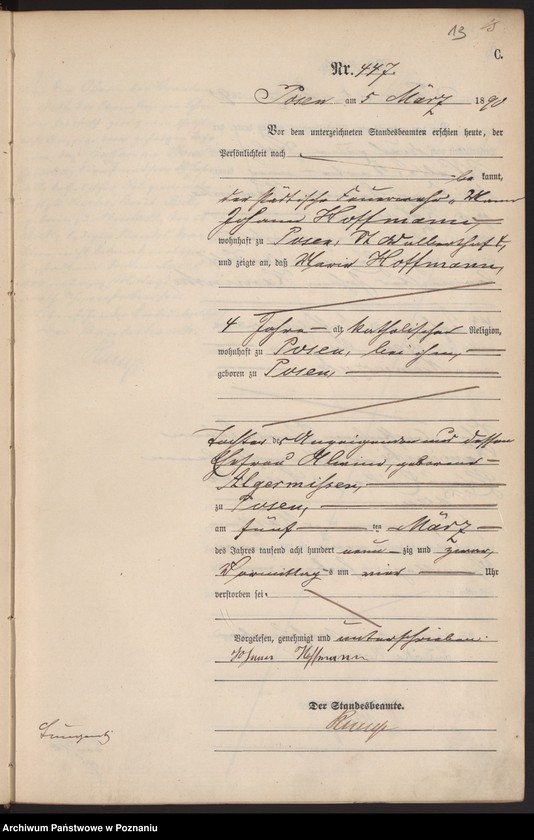 13
C.
Nr. 447.
Posen am 5 März 1890
Vor dem unterzeichneten Standesbeamten erschien heute, der
Persönlichkeit nach
be kannt,
der städtische Feuerwehr-Mann
Johann Hoffmann,
wohnhaft zu Posen,
und zeigte an, daß Maria Hoffmann,
4 Jahre alt, katholischer Religion,
wohnhaft zu Posen, bei ihm,
geboren zu Posen,
Tochter des Anzeigenden und dessen
Ehefrau geborene
Algermissen,
zu Posen,
am fünf ten März
des Jahres tausend acht hundert neun zig und zwar,
Vormittags um vier Uhr
verstorben sei.
Vorgelesen, genehmigt und unterschrieben.
Johann Hoffmann
Der Standesbeamte.
Archiwum Państwowe w Poznaniu